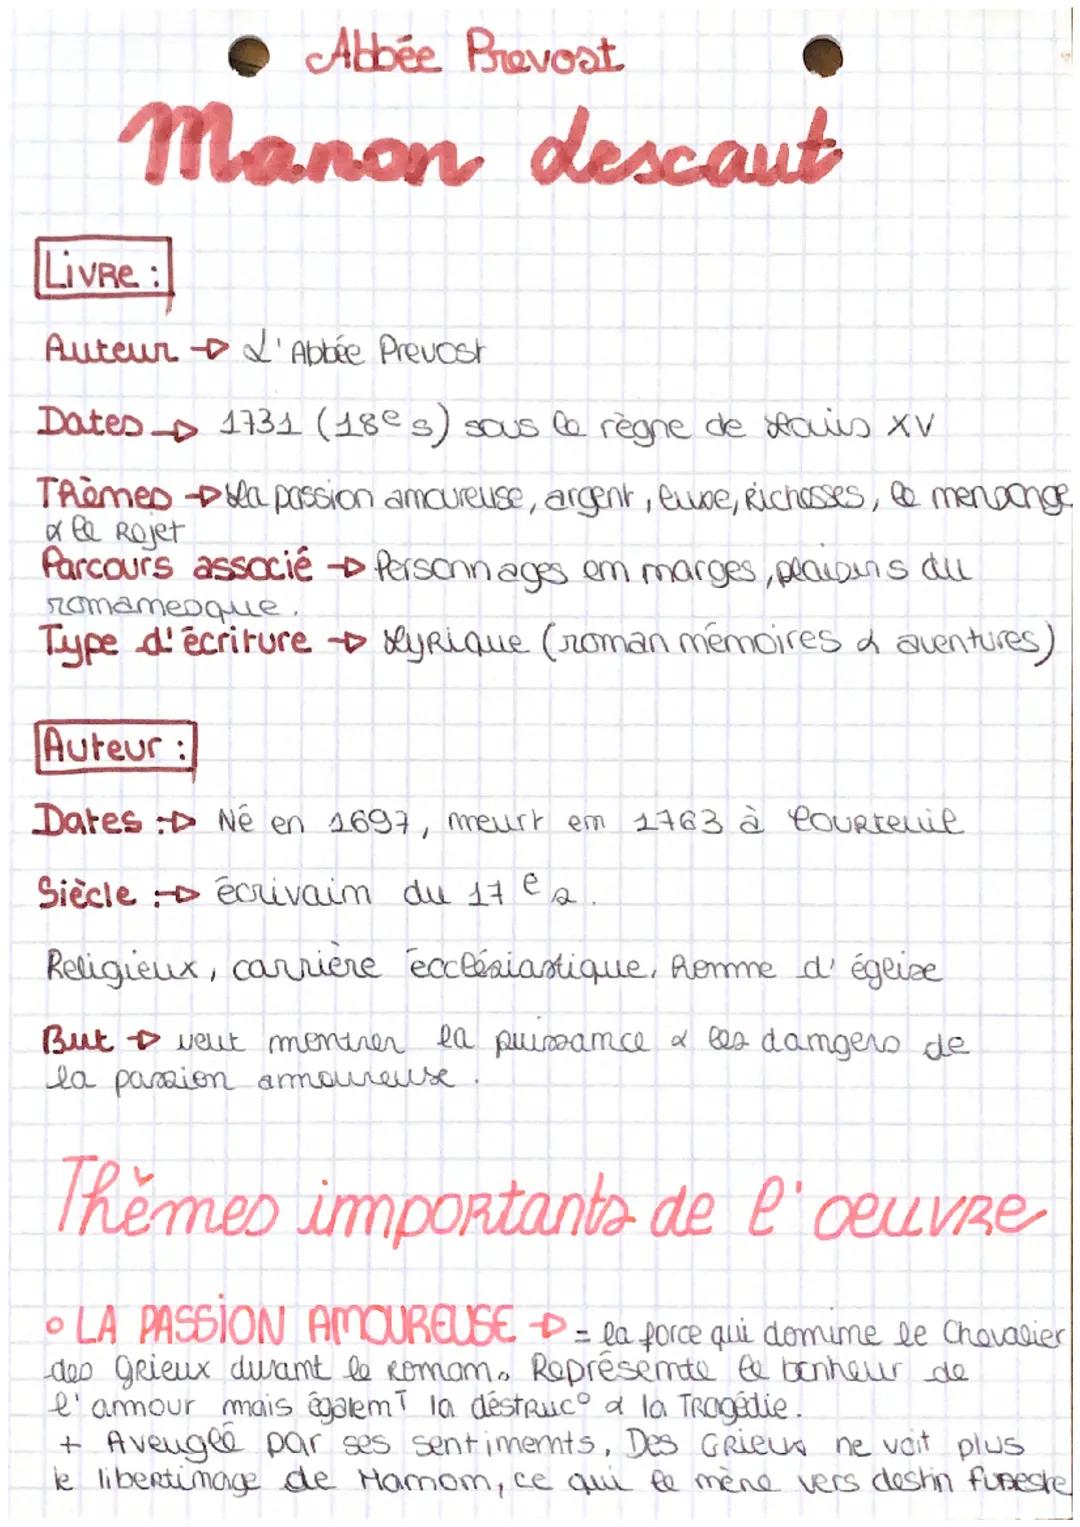 Abbée Prevost
Manon descaut
Livre :
Auteur → L'Abbée Prevost
Dates → 1731 (18e s) sous le règne de Louis XV
Thèmes → La passion amoureuse, argent, luxe, Richesses, le mensonge
& le Rejet
Parcours associé → Personnages em marges, plaisirs du
romamesque.
Type d'écriture → Lyrique (roman mémoires & aventures)
Auteur :
Dates :→ Né en 1697, meurt em 1763 à Courteuil
Siècle :→ écrivaim du 17 e s.
Religieux, carrière ecclésiastique, Homme d'église
But → veut montrer la puissamce & les damgers de
la passion ammoureuse.
Thèmes importants de l'oeuvre
• LA PASSION AMOUREUSE → = la force qui domime le Chevalier
des Grieux durant le romam. Représemte le bonheur de
l'ammour mais égalemt la déstruc° & la Tragédie.
+ Aveuglé par ses sentimemts, Des Grieux ne voit plus
le libertimage de Mamom, ce qui le mène vers destin funeste